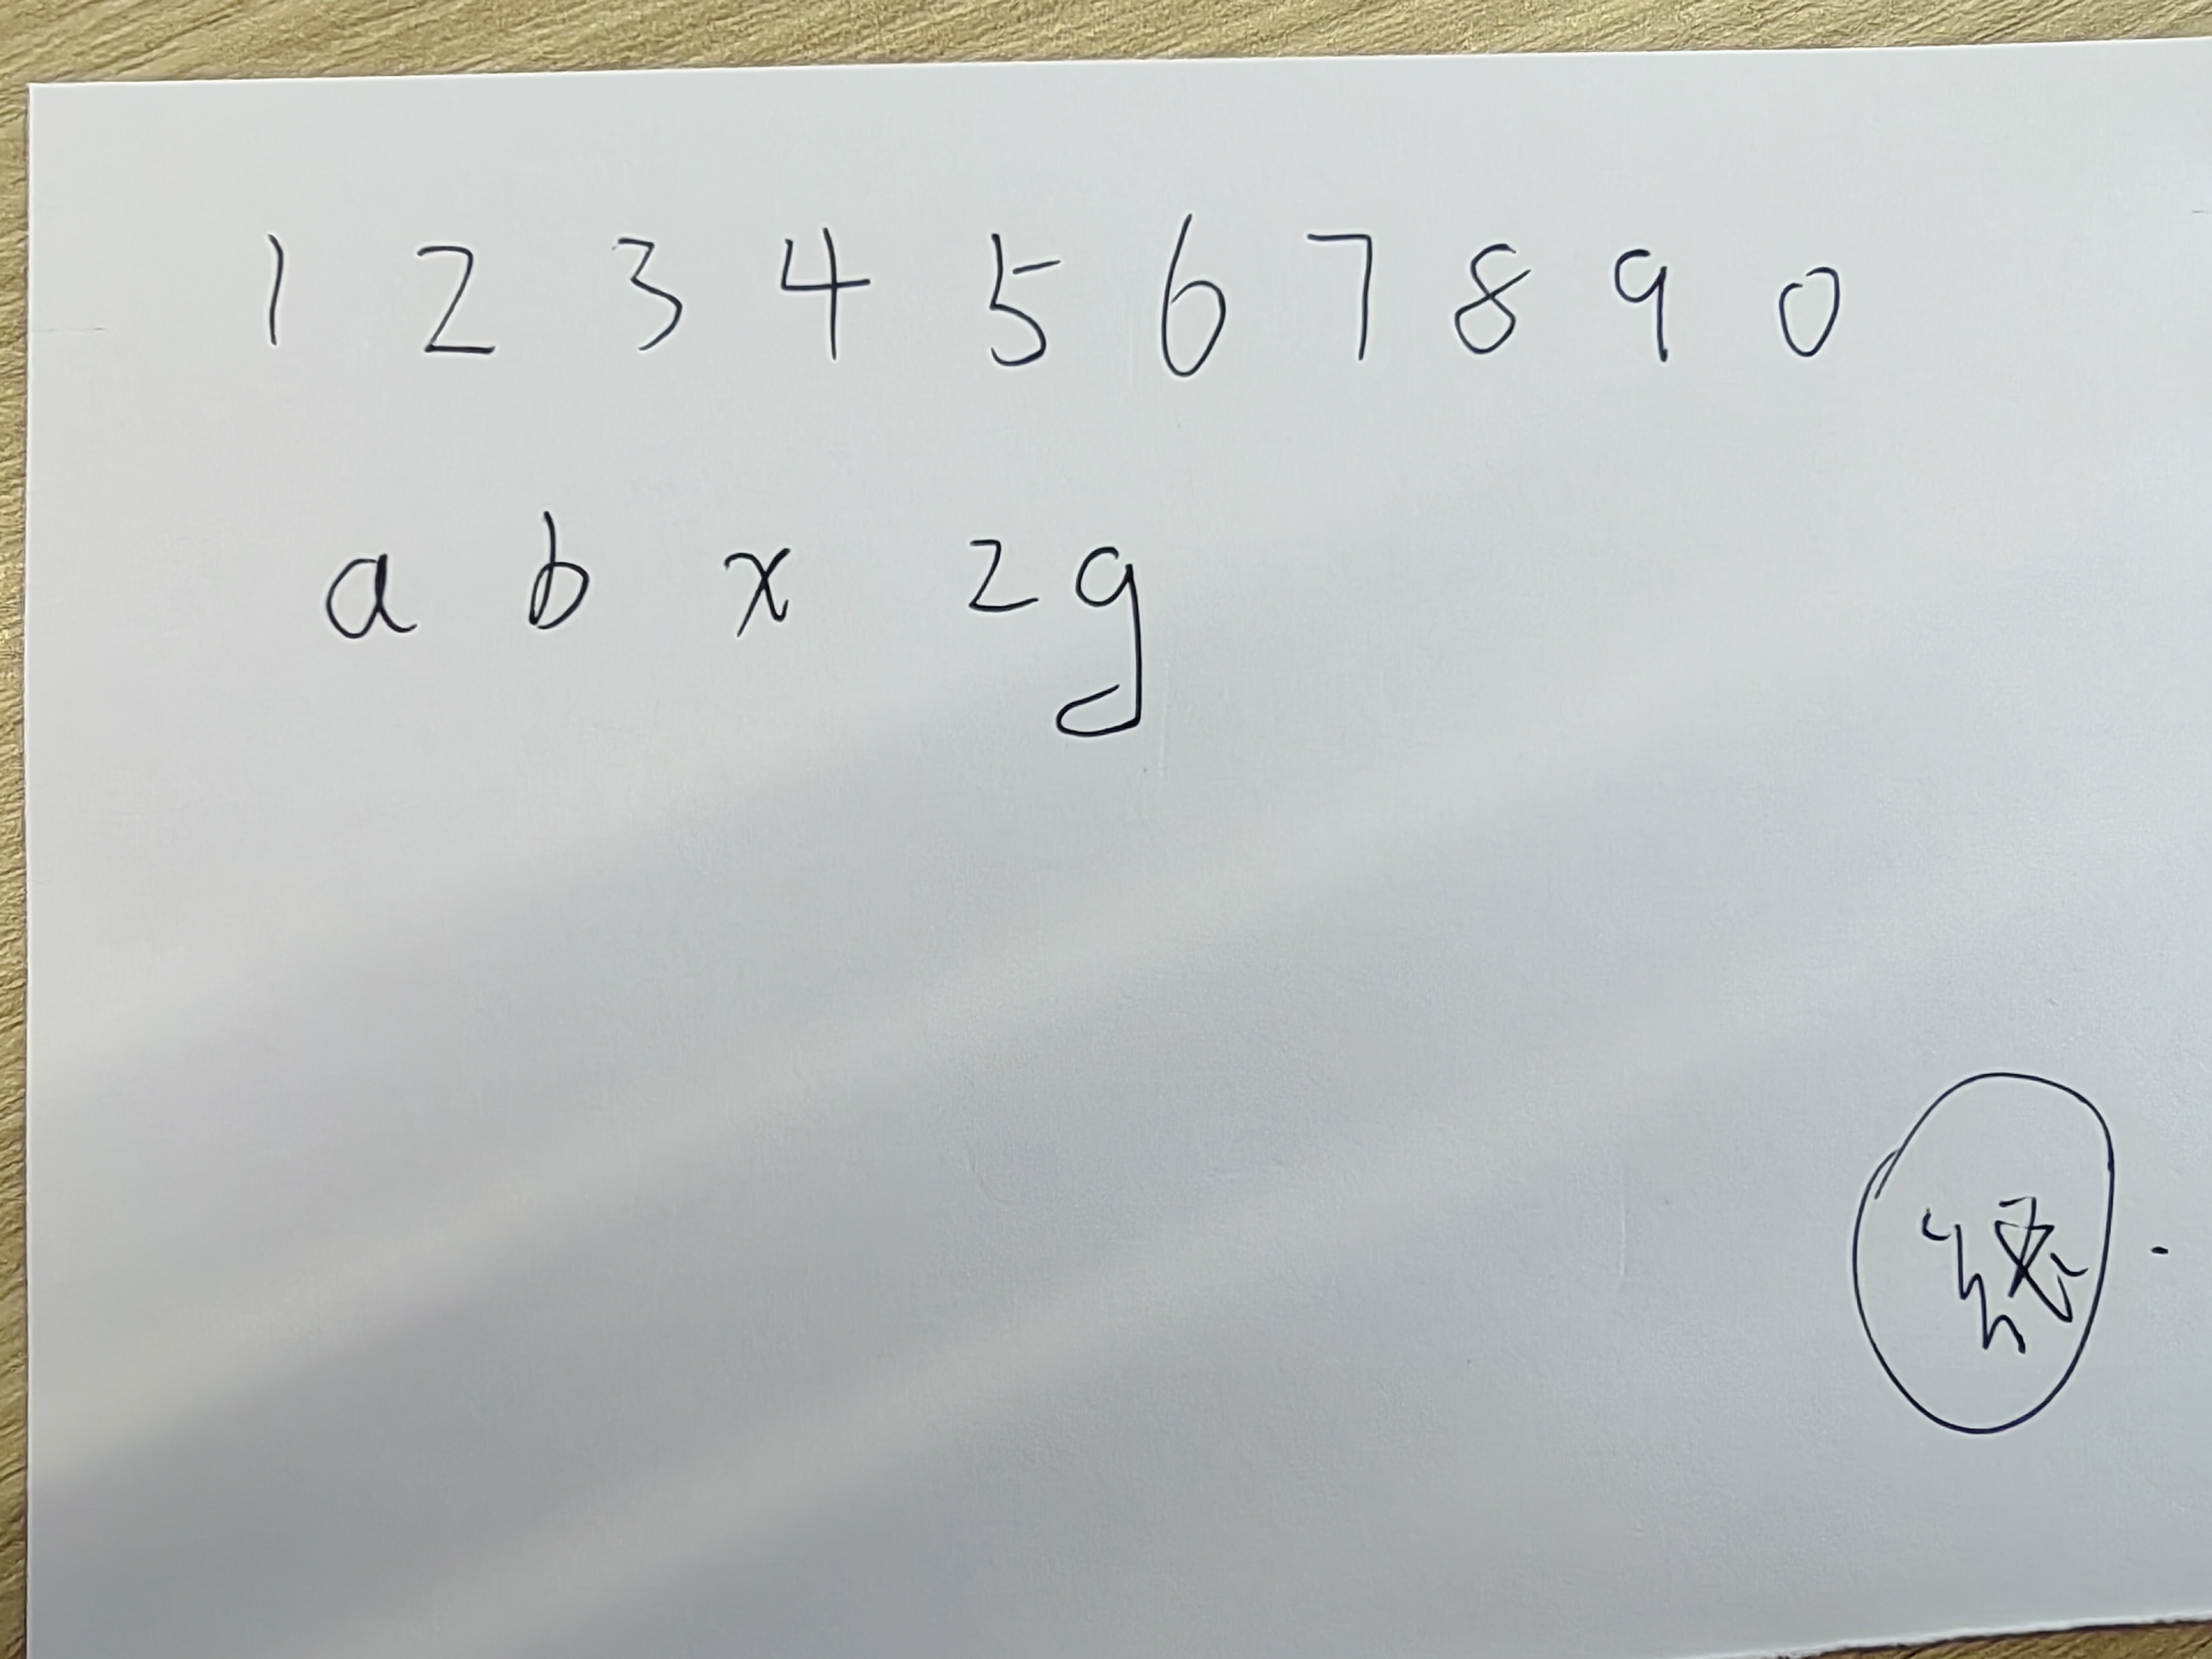 1 2 3 4 5 6 7 8 9 0
a b x z g